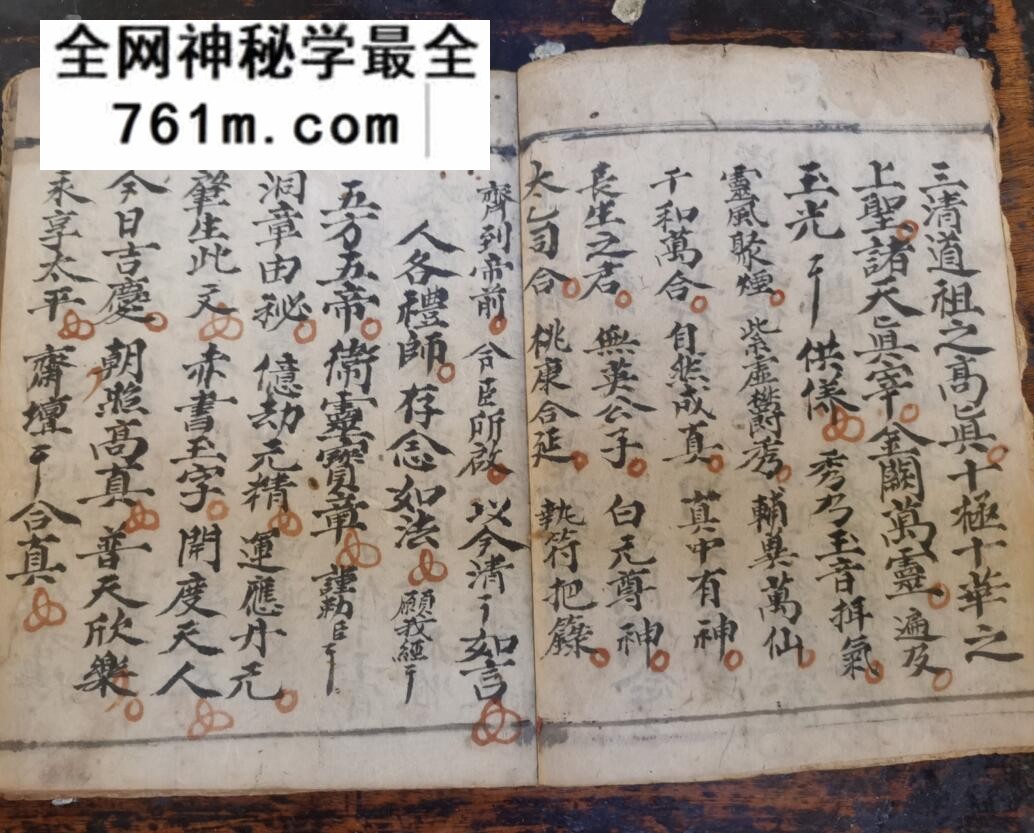 全网神秘学最全
761m.com
三清道祖之高眞十極十華之
上聖諸天眞宰金闕萬靈遍及
玉光 供儀秀乃玉音揖氣
靈風聚煙紫虛欝秀輔翼萬仙
千和萬合自然成真真中有神
長生之君無英公子白元尊神
太乙司合桃康合延執符把籙
齊到帝前令臣所啟以今清 如言
人各禮師存念如法願我經
五方五帝衛靈寶章謹勅臣
洞章由秘億劫元精運應丹元
肇生此文赤書玉字開度天人
今日吉慶朝炁高真普天欣樂
永享太平齋壇 合真